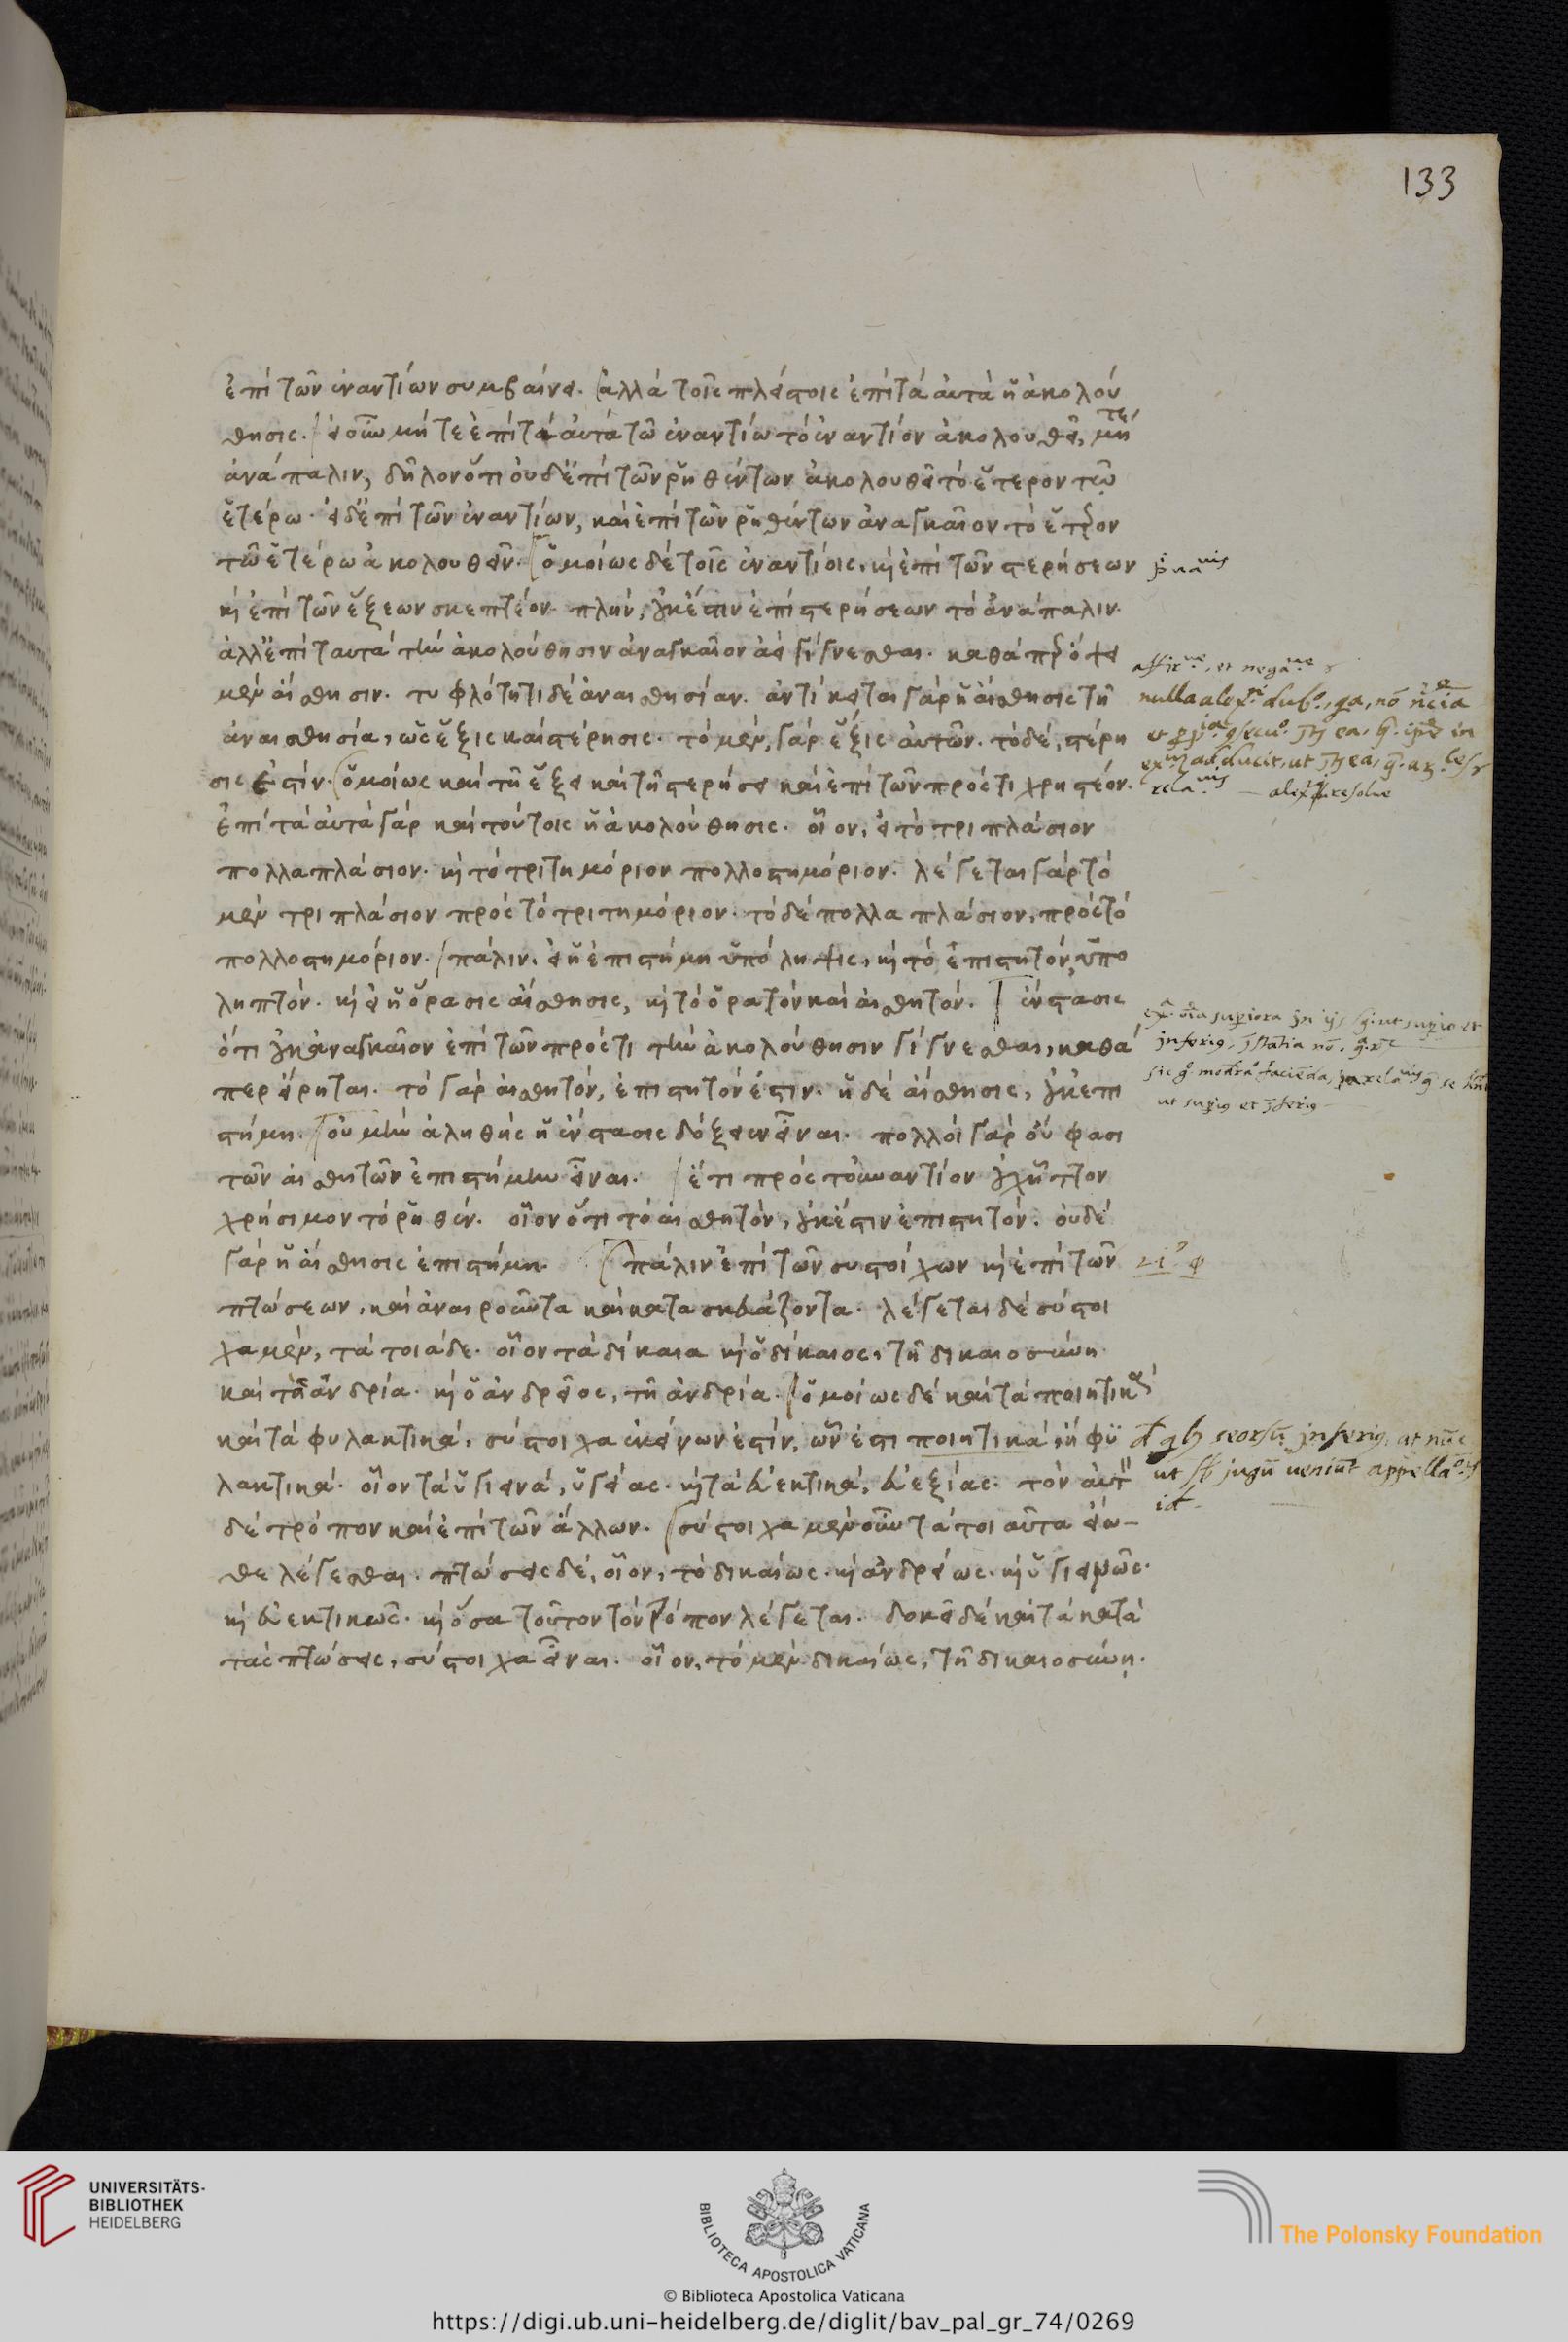 133
ἐπὶ τῶν ἐναντίων συμβαίνει. ἀλλὰ τοῖς πλείστοις ἐπὶ τὰ αὐτὰ ἡ ἀκολού
θησις. εἰ οὖν μήτε ἐπὶ τὰ αὐτὰ τῶ ἐναντίω τὸ ἐναντίον ἀκολουθεῖ, μήτε
ἀνάπαλιν, δῆλον ὅτι οὐδ' ἐπὶ τῶν ῥηθέντων ἀκολουθεῖ τὸ ἕτερον τῷ
ἑτέρω. εἰ δ' ἐπὶ τῶν ἐναντίων, καὶ ἐπὶ τῶν ῥηθέντων ἀναγκαῖον τὸ ἕτερον
τῶ ἑτέρω ἀκολουθεῖν. ὁμοίως δὲ τοῖς ἐναντίοις, καὶ ἐπὶ τῶν στερήσεων
καὶ ἐπὶ τῶν ἕξεων σκεπτέον. πλὴν, οὐκ ἔστιν ἐπὶ στερήσεων τὸ ἀνάπαλιν.
ἀλλ' ἐπὶ ταυτὰ τὴν ἀκολούθησιν ἀναγκαῖον ἀεὶ γίγνεσθαι. καθάπερ ὄψει
μὲν αἴσθησιν. τυφλότητι δὲ ἀναισθησίαν. ἀντίκειται γὰρ ἡ αἴσθησις τῆ
ἀναισθησία, ὡς ἕξις καὶ στέρησις. τὸ μὲν, γὰρ ἕξις αὐτῶν. τὸ δὲ, στέρη
σις ἐστίν. ὁμοίως καὶ τῆ ἕξει καὶ τῆ στερήσει καὶ ἐπὶ τῶν πρός τι χρηστέον.
ἐπὶ τὰ αὐτὰ γὰρ καὶ τούτοις ἡ ἀκολούθησις. οἷον, εἰ τὸ τριπλάσιον
πολλαπλάσιον. καὶ τὸ τριτημόριον πολλοστημόριον. λέγεται γὰρ τὸ
μὲν τριπλάσιον πρὸς τὸ τριτημόριον. τὸ δὲ πολλαπλάσιον, πρὸς τὸ
πολλοστημόριον. πάλιν. εἰ ἡ ἐπιστήμη ὑπόληψις, καὶ τὸ ἐπιστητόν, ὑπο
ληπτόν. καὶ εἰ ἡ ὅρασις αἴσθησις, καὶ τὸ ὁρατὸν καὶ αἰσθητόν. ἔνστασις
ὅτι οὐκ ἀναγκαῖον ἐπὶ τῶν πρός τι τὴν ἀκολούθησιν γίγνεσθαι, καθά
περ εἴρηται. τὸ γὰρ αἰσθητόν, ἐπιστητόν ἐστιν. ἡ δὲ αἴσθησις, οὐκ ἐπι
στήμη. οὐ μὴν ἀληθής ἡ ἔνστασις δόξειεν εἶναι. πολλοὶ γὰρ οὔ φασι
τῶν αἰσθητῶν ἐπιστήμην εἶναι. ἔτι πρὸς τοὐναντίον οὐχ ἧττον
χρήσιμον τὸ ῥηθέν. οἷον ὅτι τὸ αἰσθητὸν, οὐκ ἔστιν ἐπιστητόν. οὐδὲ
γὰρ ἡ αἴσθησις ἐπιστήμη. πάλιν ἐπὶ τῶν συστοίχων καὶ ἐπὶ τῶν
πτώσεων, καὶ ἀναιροῦντα καὶ κατασκευάζοντα. λέγεται δὲ σύστοι
χα μὲν, τὰ τοιάδε. οἷον τὰ δίκαια καὶ ὁ δίκαιος, τῆ δικαιοσύνη.
καὶ τὰ ἀνδρία. καὶ ὁ ἀνδρεῖος, τῆ ἀνδρία. ὁμοίως δὲ καὶ τὰ ποιητικὰ
καὶ τὰ φυλακτικά. σύστοιχα ἐκείνων ἐστίν, ὧν ἐστι ποιητικὰ, ἢ φυ
λακτικά. οἷον τὰ ὑγιεινά, ὑγείας. καὶ τὰ εὐεκτικά, εὐεξίας. τὸν αὐτὸν
δὲ τρόπον καὶ ἐπὶ τῶν ἄλλων. σύστοιχα μὲν οὖν τὰ τοιαῦτα εἴω-
θε λέγεσθαι. πτώσεις δέ, οἷον, τὸ δικαίως. καὶ ἀνδρείως. καὶ ὑγιεινῶς.
καὶ εὐεκτικῶς. καὶ ὅσα τοῦτον τὸν τρόπον λέγεται. δοκεῖ δὲ καὶ τὰ κατὰ
τὰς πτώσεις, σύστοιχα εἶναι. οἷον, τὸ μὲν δικαίως, τῆ δικαιοσύνῃ.
UNIVERSITÄTS-
BIBLIOTHEK
HEIDELBERG
BIBLIOTECA APOSTOLICA VATICANA
The Polonsky Foundation
© Biblioteca Apostolica Vaticana
https://digi.ub.uni-heidelberg.de/diglit/bav_pal_gr_74/0269